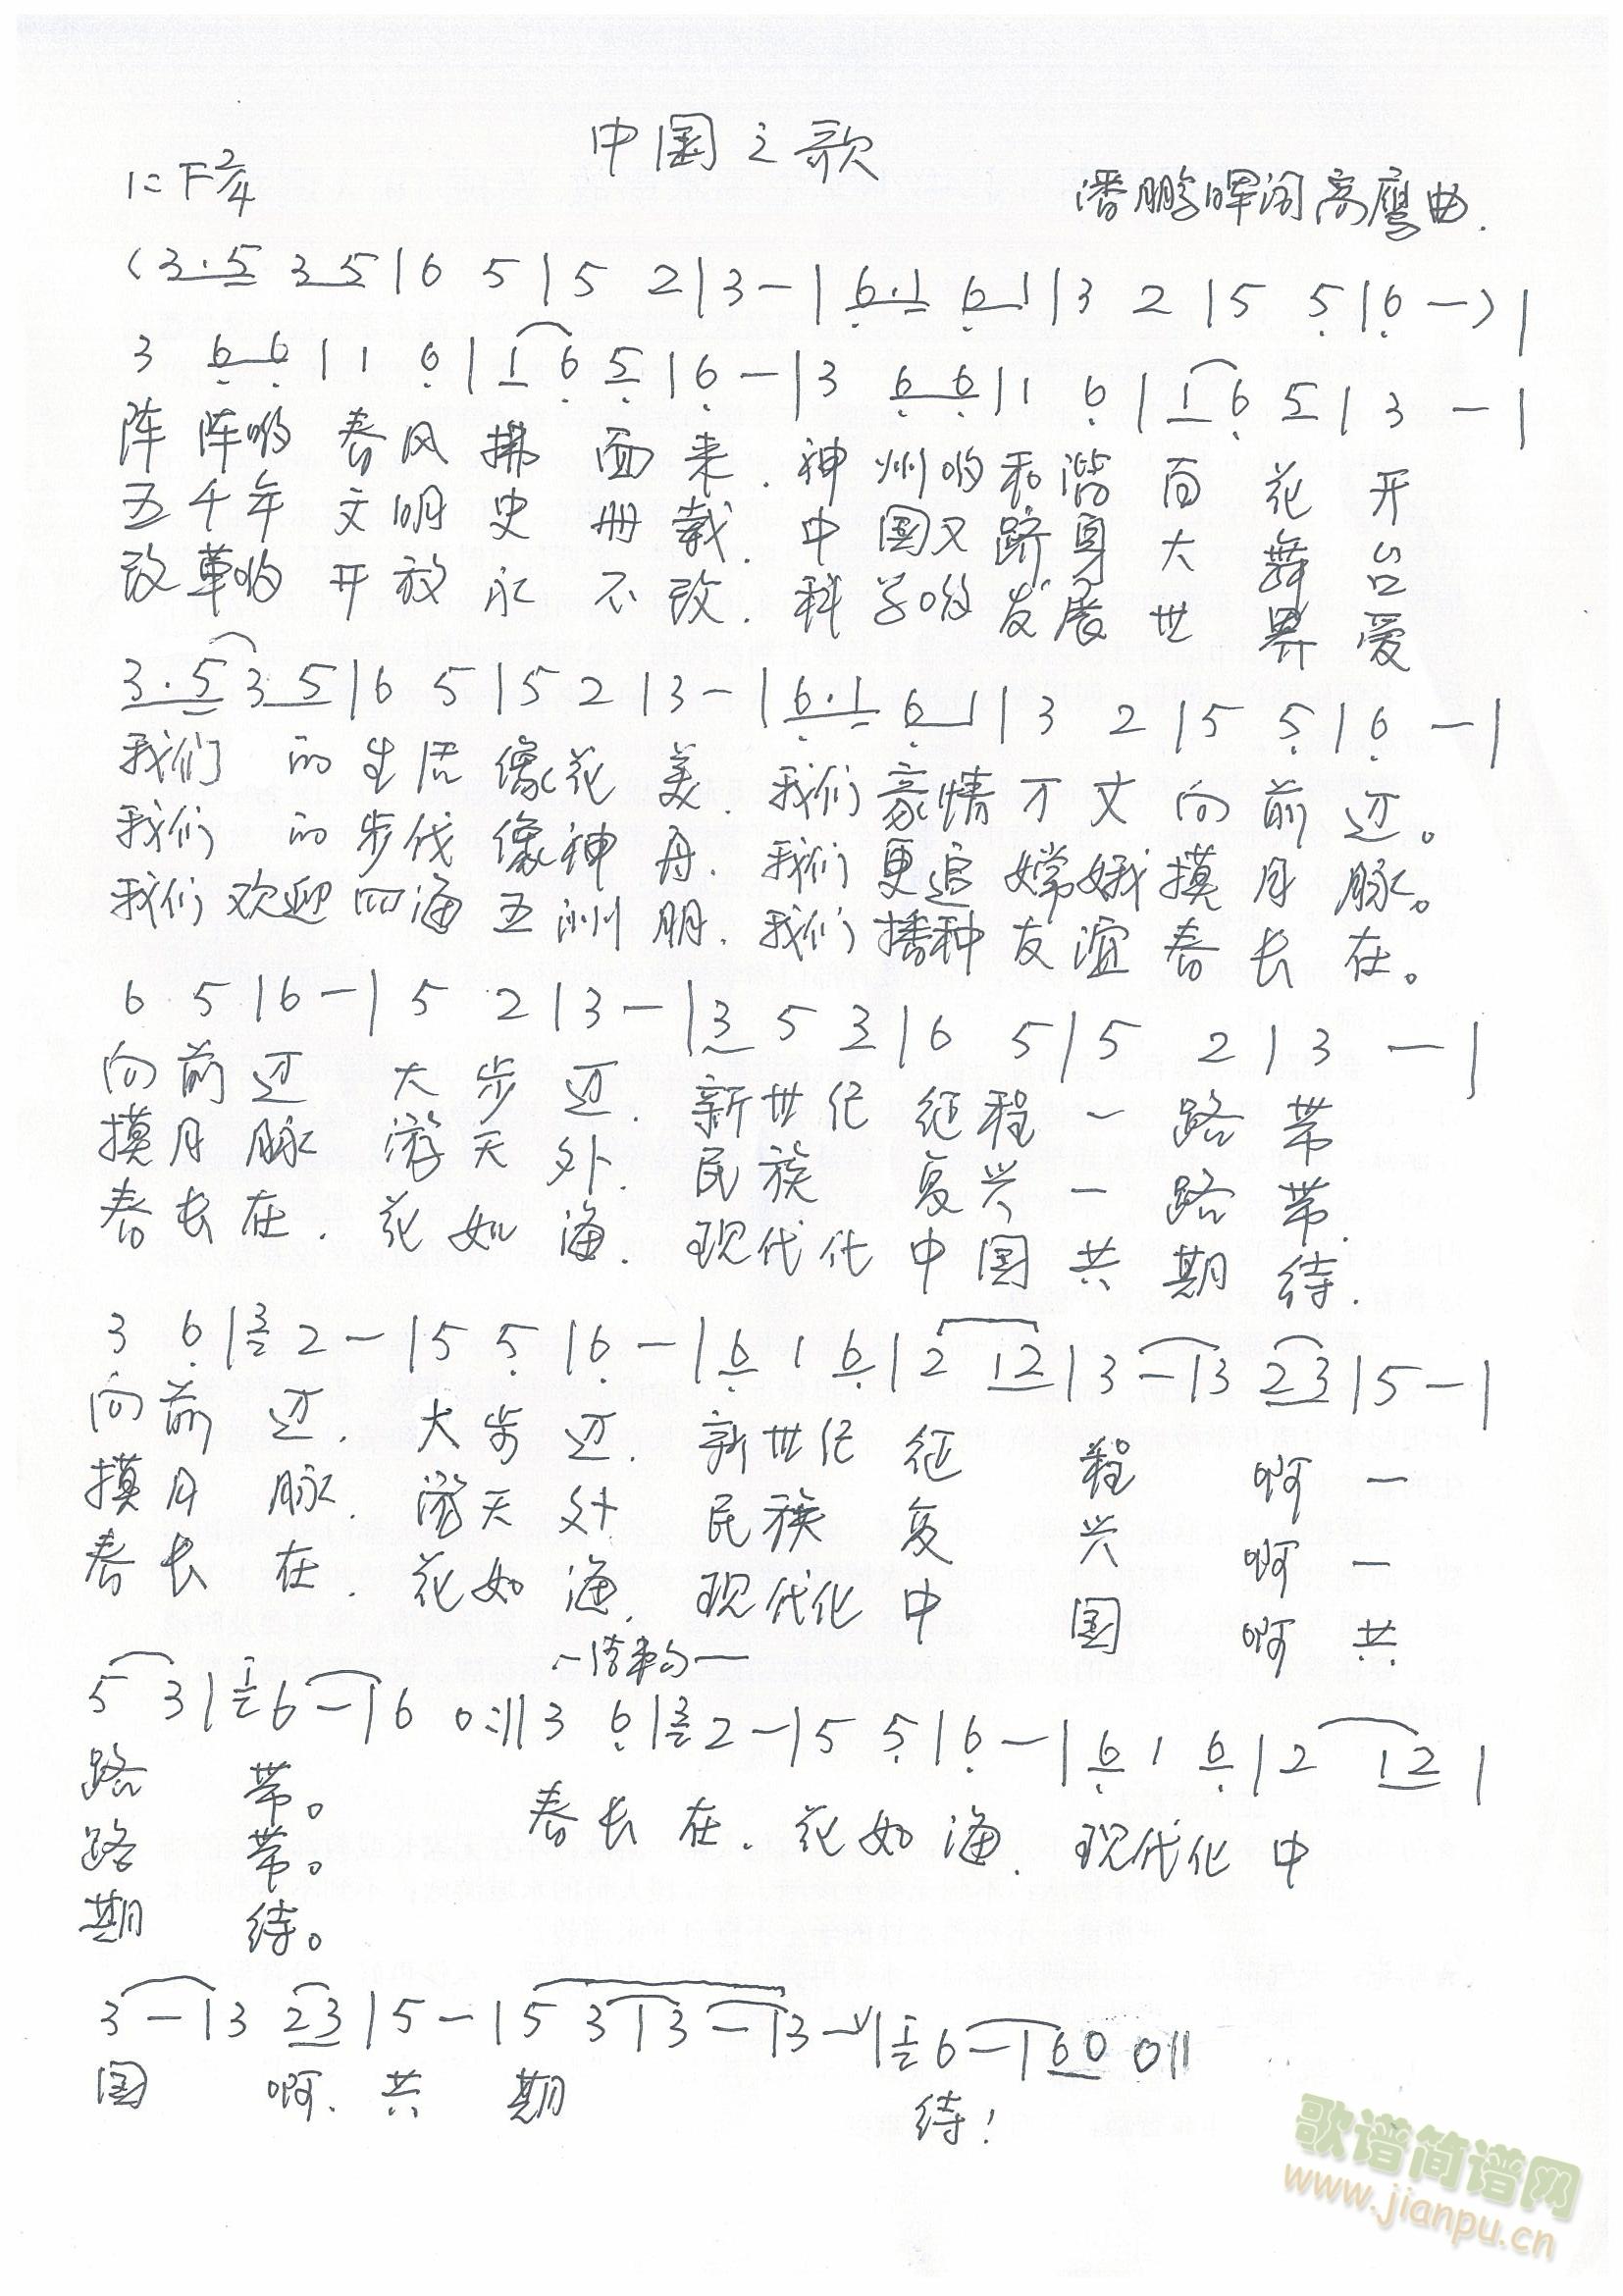 中国之歌
1=F 2/4
潘鹏晖词 高鹰曲.
(3·5 3 5 | 6 5 | 5 2 | 3 - | 6·1 6 1 | 3 2 | 5 5 | 6 -) |
3 6 6 | 1 6 | 1 6 5 | 6 - | 3 6 6 | 1 6 | 1 6 5 | 3 - |
阵阵哟春风拂面来.神州哟和谐百花开
五千年文明史册载.中国又跻身大舞台
改革哟开放永不改.科学哟发展世界爱
3·5 3 5 | 6 5 | 5 2 | 3 - | 6·1 6 1 | 3 2 | 5 5 | 6 - |
我们的生活像花美.我们豪情万丈向前迈。
我们的步伐像神舟.我们更追嫦娥摸月脉。
我们欢迎四海五洲朋.我们播种友谊春长在。
6 5 | 6 - | 5 2 | 3 - | 3 5 3 | 6 5 | 5 2 | 3 - |
向前迈 大步迈.新世纪征程一路带
摸月脉 游天外.民族复兴一路带.
春长在.花如海.现代化中国共期待.
3 6 | 3 2 - | 5 5 | 6 - | 6 1 6 | 2 1 2 | 3 - | 3 2 3 | 5 - |
向前迈.大步迈.新世纪征程啊一
摸月脉.游天外 民族复兴啊一
春长在.花如海.现代化中国啊共
-结束句-
5 3 | 1 6 - | 6 0 :|| 3 6 | 3 2 - | 5 5 | 6 - | 6 1 6 | 2 1 2 |
路带。 春长在.花如海.现代化中
路带。
期待。
3 - | 3 2 3 | 5 - | 5 3 | 3 - | 3 - V | 1 6 - | 6 0 0 ||
国啊.共期待!
歌谱简谱网
www.jianpu.cn